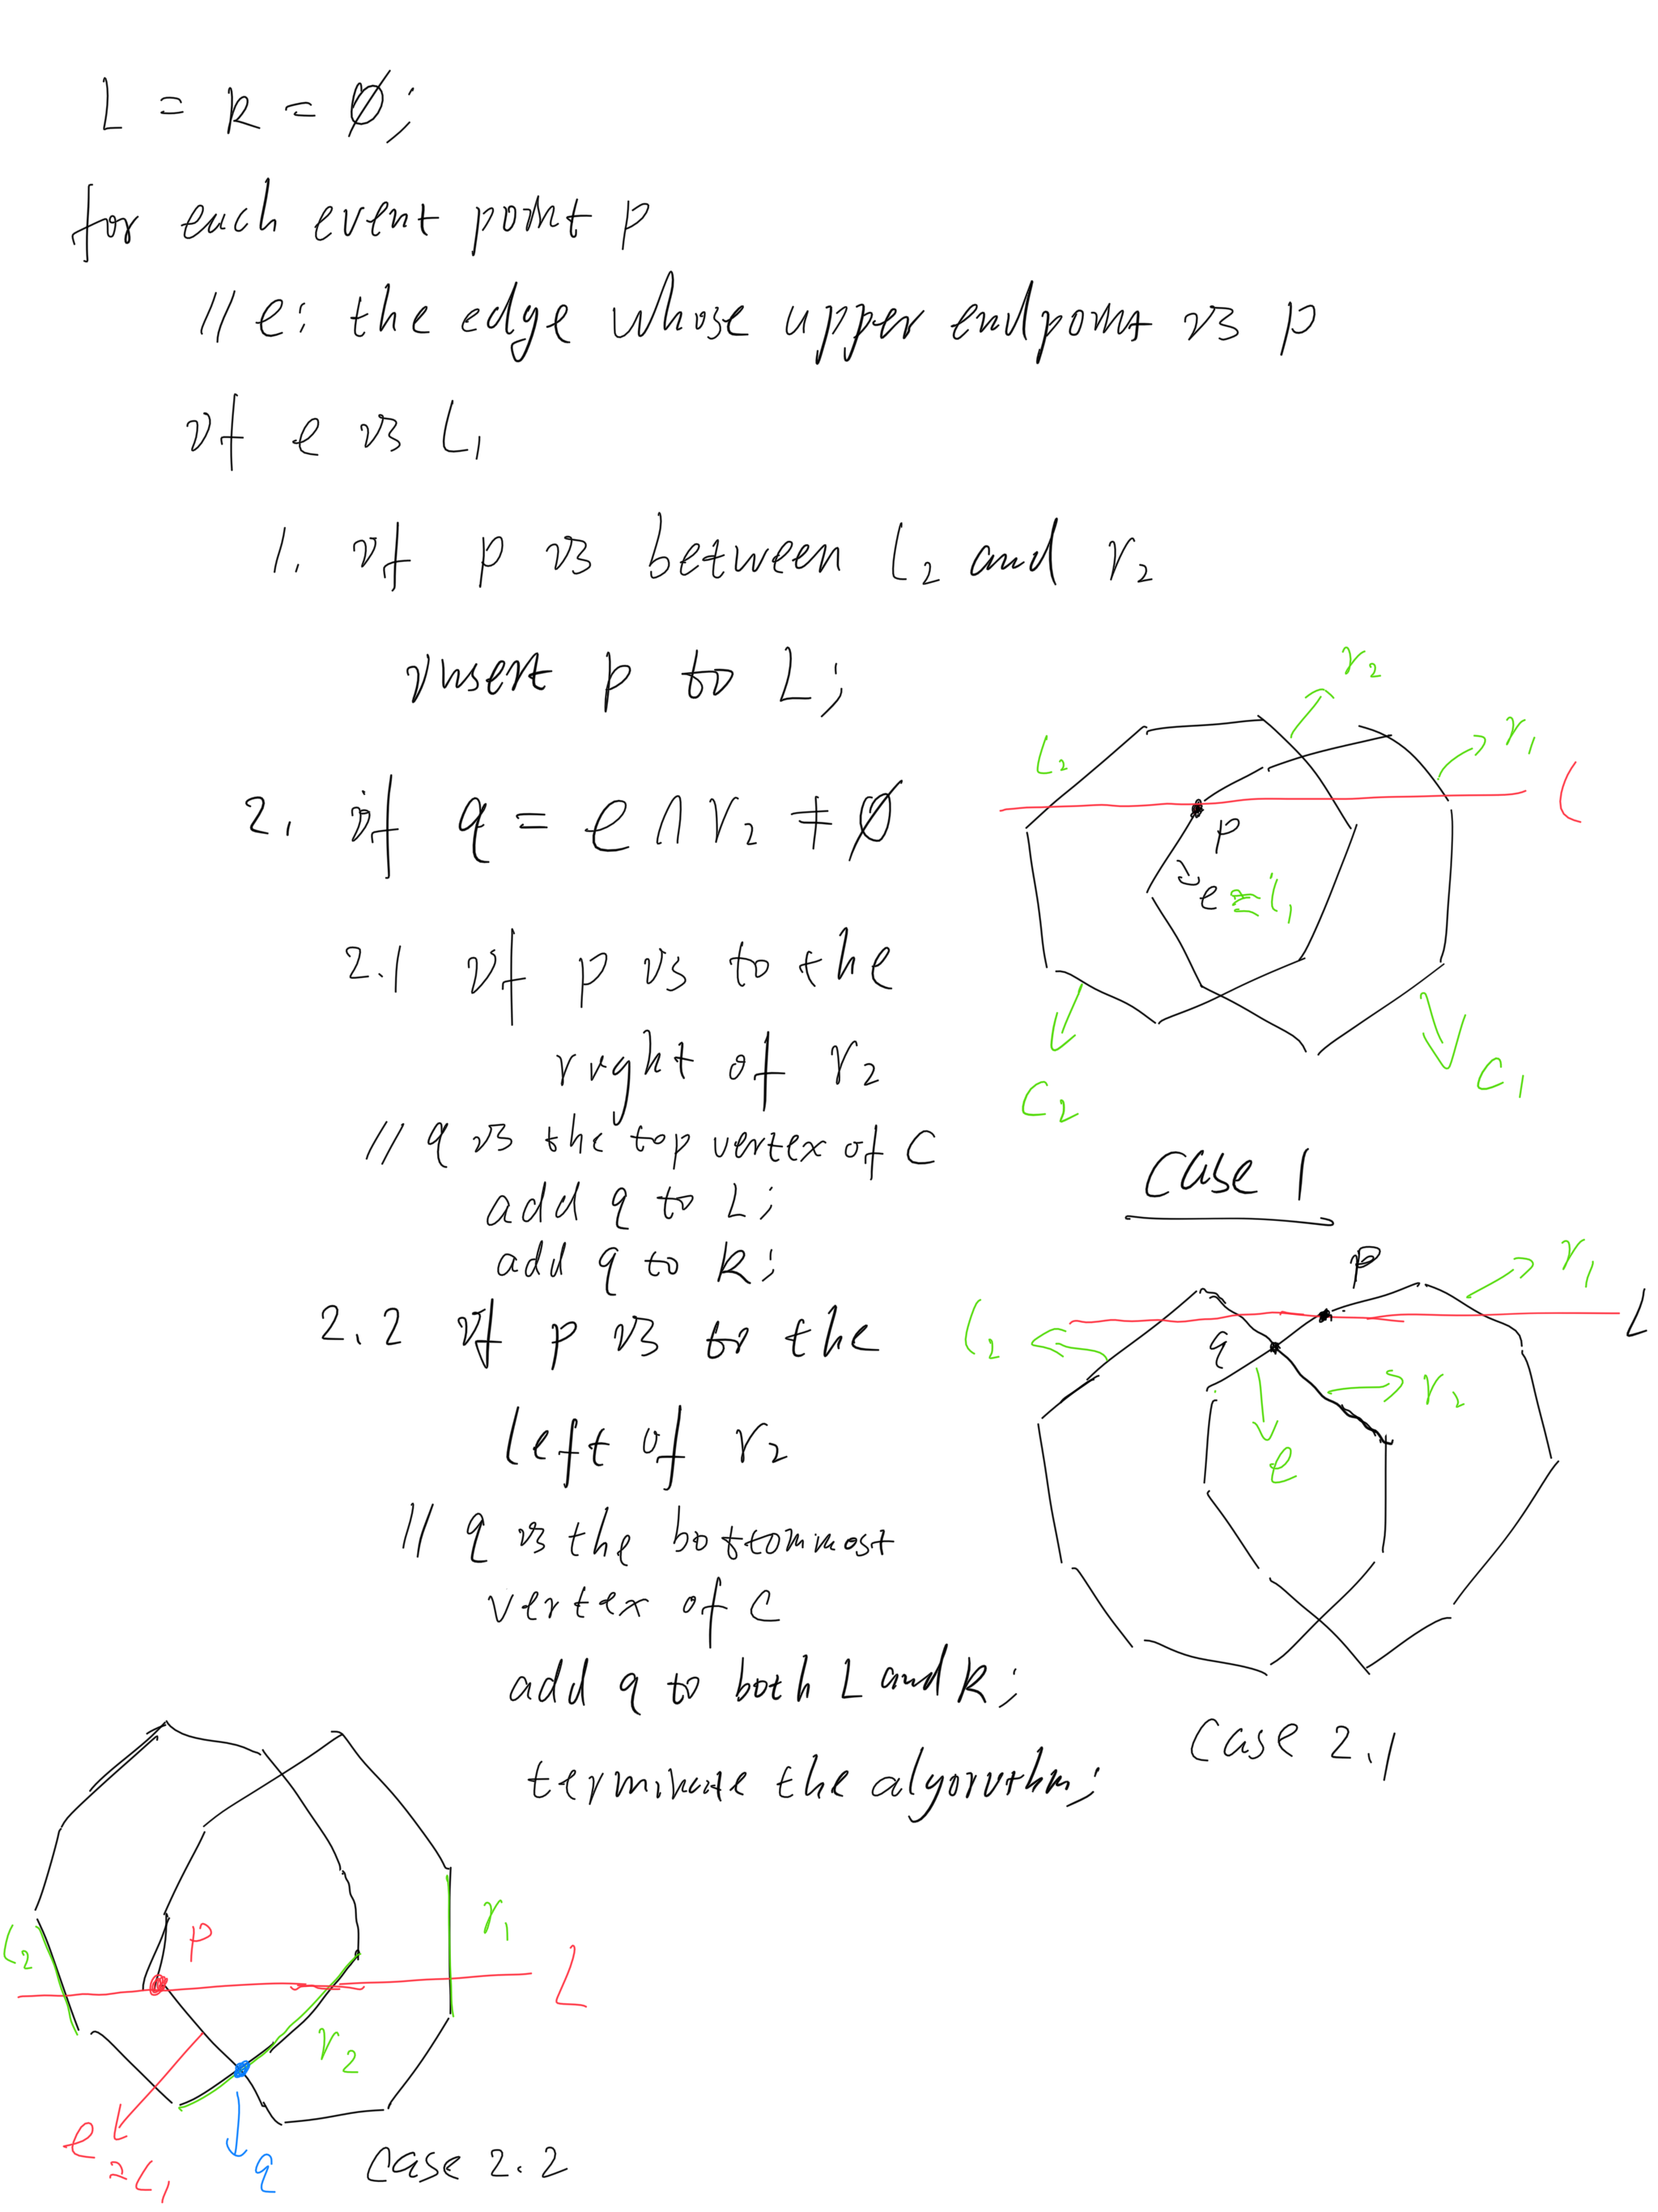 L = R = ∅;
for each event point p
// e: the edge whose upper endpoint is p
if e is l₁
1. if p is between l₂ and r₂
insert p to L;
2. if q = e ∩ r₂ ≠ ∅
2.1 if p is to the
right of r₂
// q is the top vertex of C
add q to L;
add q to R;
2.2 if p is to the
left of r₂
// q is the bottommost
vertex of C
add q to both L and R;
terminate the algorithm;
r₂
l₂
r₁
l
p
e = l₁
C₂
C₁
case 1
p
r₁
l₂
L
q
r₂
e
case 2.1
p
r₁
l₂
L
r₂
e
= l₁
q
case 2.2